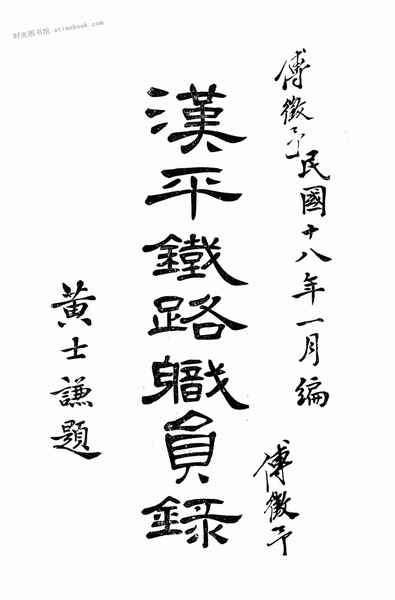 时光图书馆 · atimebook.com
傅徵予
民國十八年一月编
傅徵予
漢平鐵路職員錄
黃士謙題